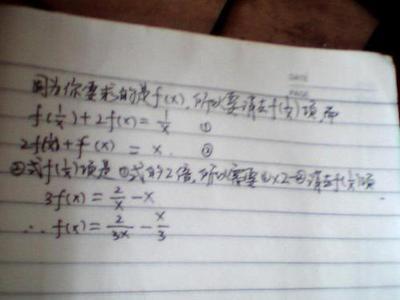 DATE
PAGE
因为你要求的是f(x),所以要消去f(1/x)项,即
f(1/x)+2f(x)=1/x ①
2f(1/x)+f(x)=x ②
②式f(1/x)项是①式的2倍,所以需要①×2-②消去f(1/x)项.
3f(x)=2/x-x
∴f(x)=2/3x-x/3